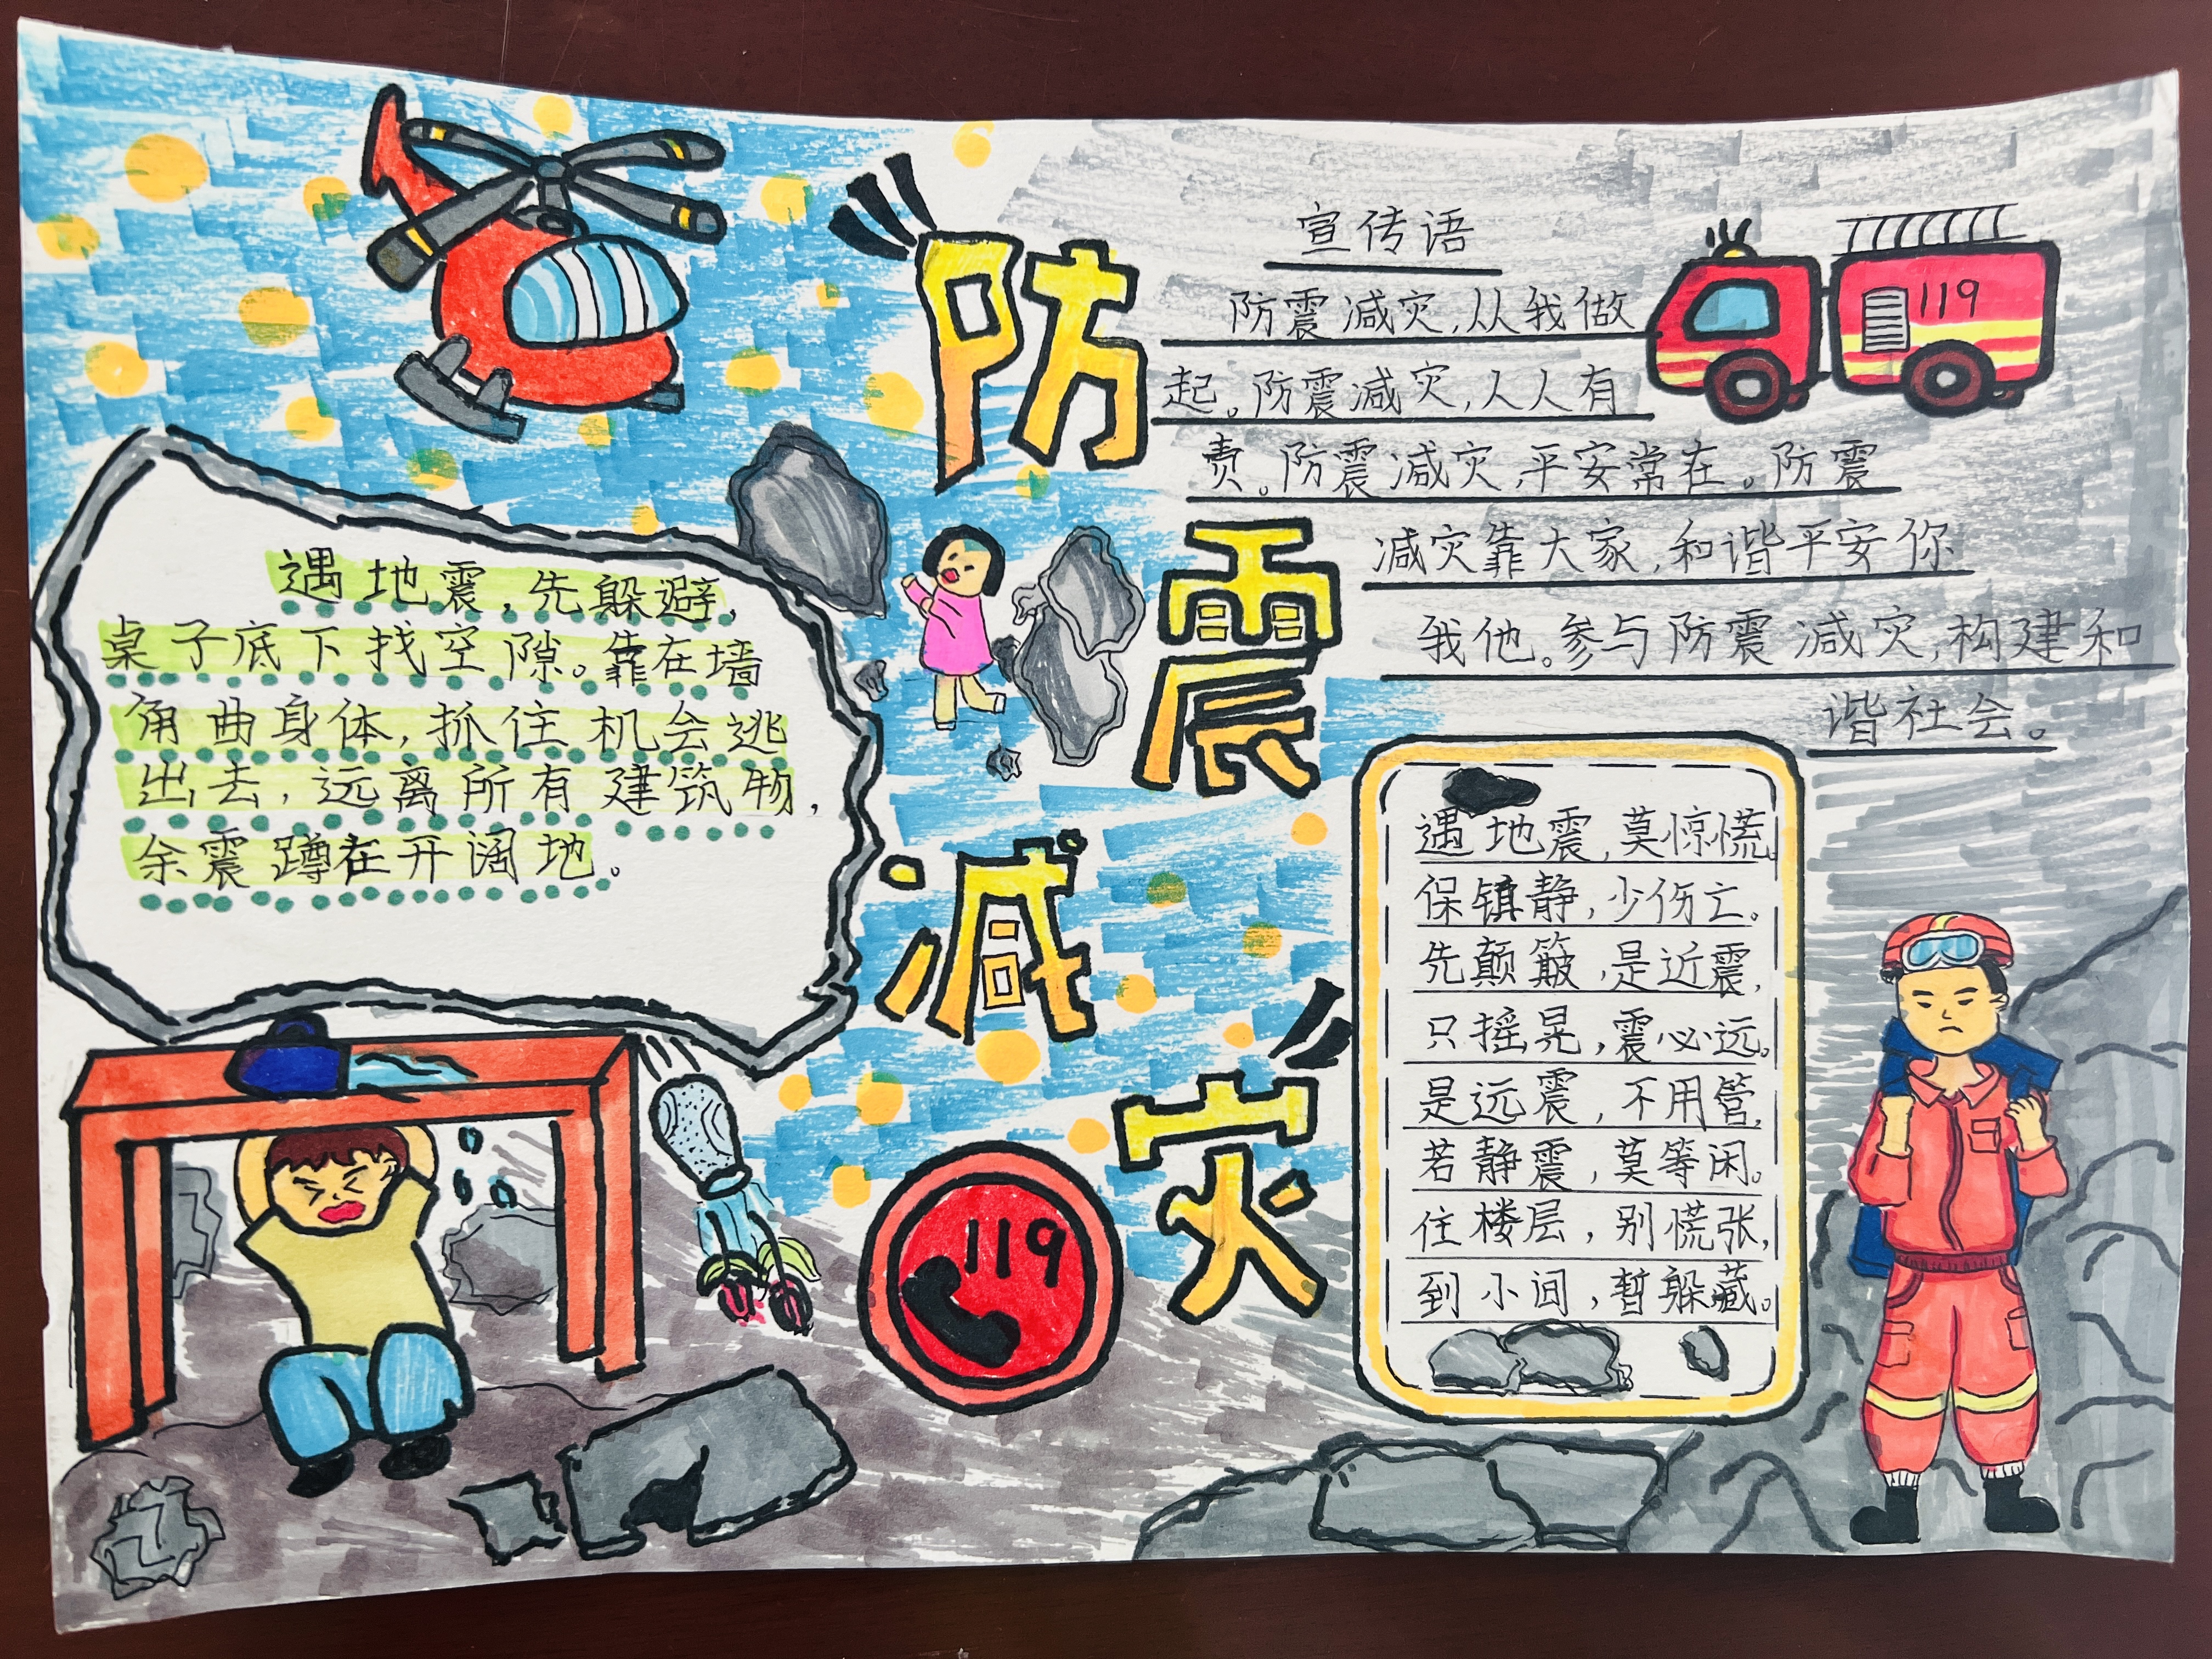 防震减灾
宣传语
防震减灾,从我做
起。防震减灾,人人有
责。防震减灾,平安常在。防震
减灾靠大家,和谐平安你
我他。参与防震减灾,构建和
谐社会。
119
遇地震,先躲避,
桌子底下找空隙。靠在墙
角曲身体,抓住机会逃
出去,远离所有建筑物,
余震蹲在开阔地。
遇地震,莫惊慌。
保镇静,少伤亡。
先颠簸,是近震,
只摇晃,震必远。
是远震,不用管,
若静震,莫等闲。
住楼层,别慌张,
到小间,暂躲藏。
119